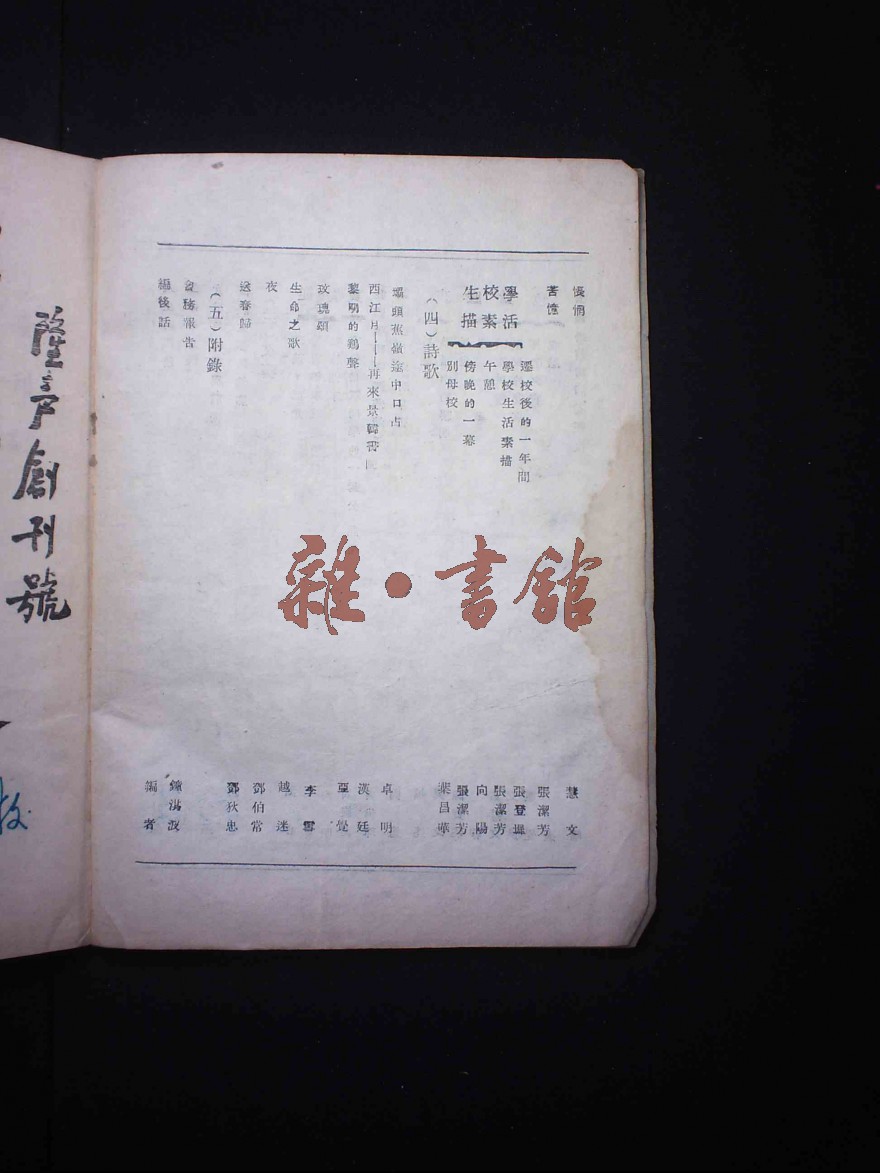 悵惘
慧文
苦憶
張潔芳
學校生活素描
遷校後的一年間
張登
學校生活素描
張潔芳
午憩
向陽
傍晚的一幕
張潔芳
別母校
葉昌華
(四)詩歌
頭蕉嶺途中口占
卓明
西江月——再來景韓書
漢廷
黎明的鷄聲
亞覺
玫瑰頌
李雪
生命之歌
越迷
夜
鄧伯常
送春歸
鄧狄忠
(五)附錄
會務報告
鍾淇波
編後話
編者
創刊號
雜·書館